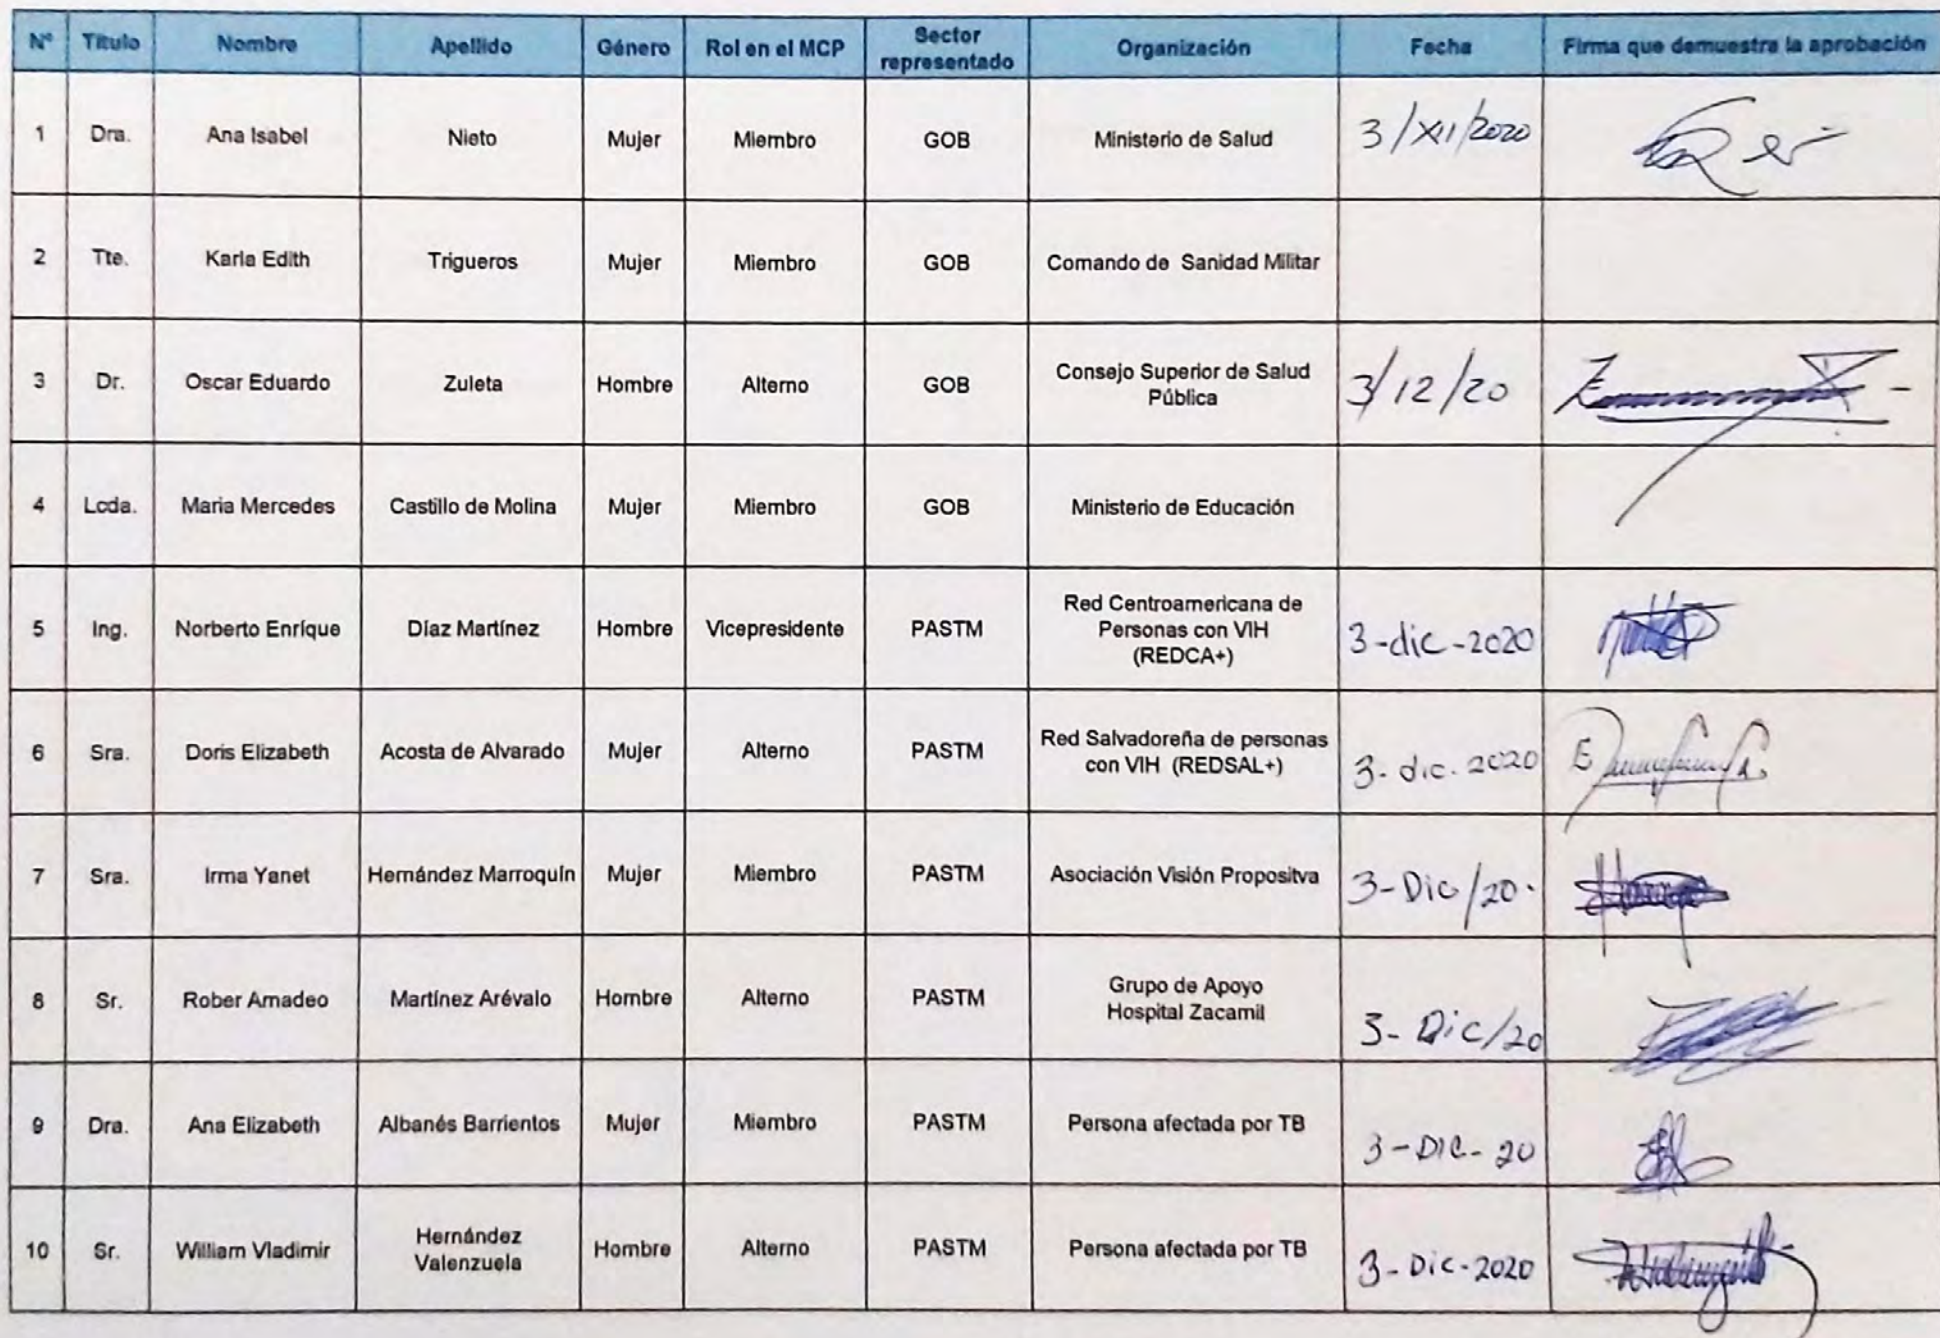 Nº Título Nombre Apellido Género Rol en el MCP Sector representado Organización Fecha Firma que demuestra la aprobación
1 Dra. Ana Isabel Nieto Mujer Miembro GOB Ministerio de Salud 3/XII/2020
2 Tte. Karla Edith Trigueros Mujer Miembro GOB Comando de Sanidad Militar
3 Dr. Oscar Eduardo Zuleta Hombre Alterno GOB Consejo Superior de Salud Pública 3/12/20
4 Lcda. Maria Mercedes Castillo de Molina Mujer Miembro GOB Ministerio de Educación
5 Ing. Norberto Enrique Díaz Martínez Hombre Vicepresidente PASTM Red Centroamericana de Personas con VIH (REDCA+) 3-dic-2020
6 Sra. Doris Elizabeth Acosta de Alvarado Mujer Alterno PASTM Red Salvadoreña de personas con VIH (REDSAL+) 3-dic.2020
7 Sra. Irma Yanet Hernández Marroquín Mujer Miembro PASTM Asociación Visión Propositva 3-Dic/20.
8 Sr. Rober Amadeo Martínez Arévalo Hombre Alterno PASTM Grupo de Apoyo Hospital Zacamil 3-Dic/20
9 Dra. Ana Elizabeth Albanés Barrientos Mujer Miembro PASTM Persona afectada por TB 3-DIC-20
10 Sr. William Vladimir Hernández Valenzuela Hombre Alterno PASTM Persona afectada por TB 3-Dic-2020